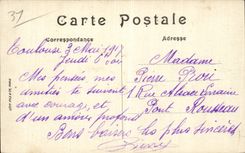 Carte Postale
Correspondance
Adresse
Toulouse 3 Mai 191
Jeudi 6
Mes pensées mes
amitiés te suivent
avec courage, et
d'un amour profond
Bons baisers les plus sincères
Pierre
Madame
Pierre
1 Rue Alsace Lorraine
Pont Rousseau